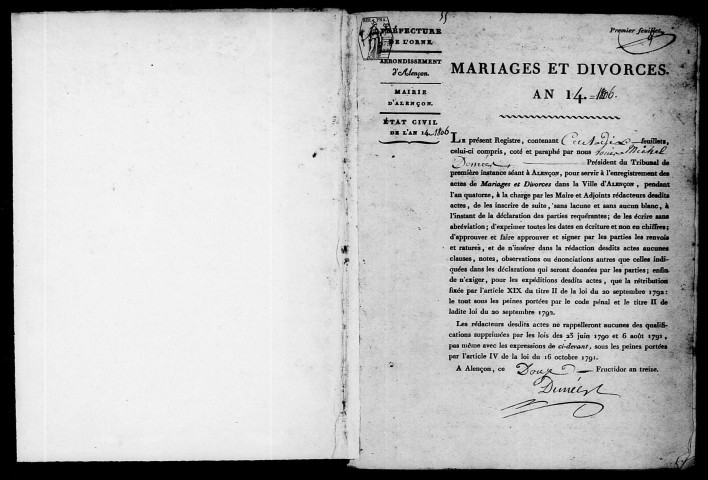 Premier feuillet
PRÉFECTURE
DE L'ORNE.
ARRONDISSEMENT
d'Alençon.
MAIRIE
D'ALENÇON.
ÉTAT CIVIL
DE L'AN 14 = 1806
MARIAGES ET DIVORCES.
AN 14. = 1806.
LE présent Registre, contenant Cent dix feuillets,
celui-ci compris, coté et paraphé par nous Michel
Président du Tribunal de
première instance séant à ALENÇON, pour servir à l'enregistrement des
actes de Mariages et Divorces dans la Ville d'ALENÇON, pendant
l'an quatorze, à la charge par les Maire et Adjoints rédacteurs desdits
actes, de les inscrire de suite, sans lacune et sans aucun blanc, à
l'instant de la déclaration des parties requérantes; de les écrire sans
abréviation; d'exprimer toutes les dates en écriture et non en chiffres;
d'approuver et faire approuver et signer par les parties les renvois
et ratures, et de n'insérer dans la rédaction desdits actes aucunes
clauses, notes, observations ou énonciations autres que celles indi-
quées dans les déclarations qui seront données par les parties; enfin
de n'exiger, pour les expéditions desdits actes, que la rétribution
fixée par l'article XIX du titre II de la loi du 20 septembre 1792:
le tout sous les peines portées par le code pénal et le titre II de
ladite loi du 20 septembre 1792.
Les rédacteurs desdits actes ne rappelleront aucunes des qualifi-
cations supprimées par les lois des 23 juin 1790 et 6 août 1791,
pas même avec les expressions de ci-devant, sous les peines portées
par l'article IV de la loi du 16 octobre 1791.
A Alençon, ce Douze Fructidor an treize.